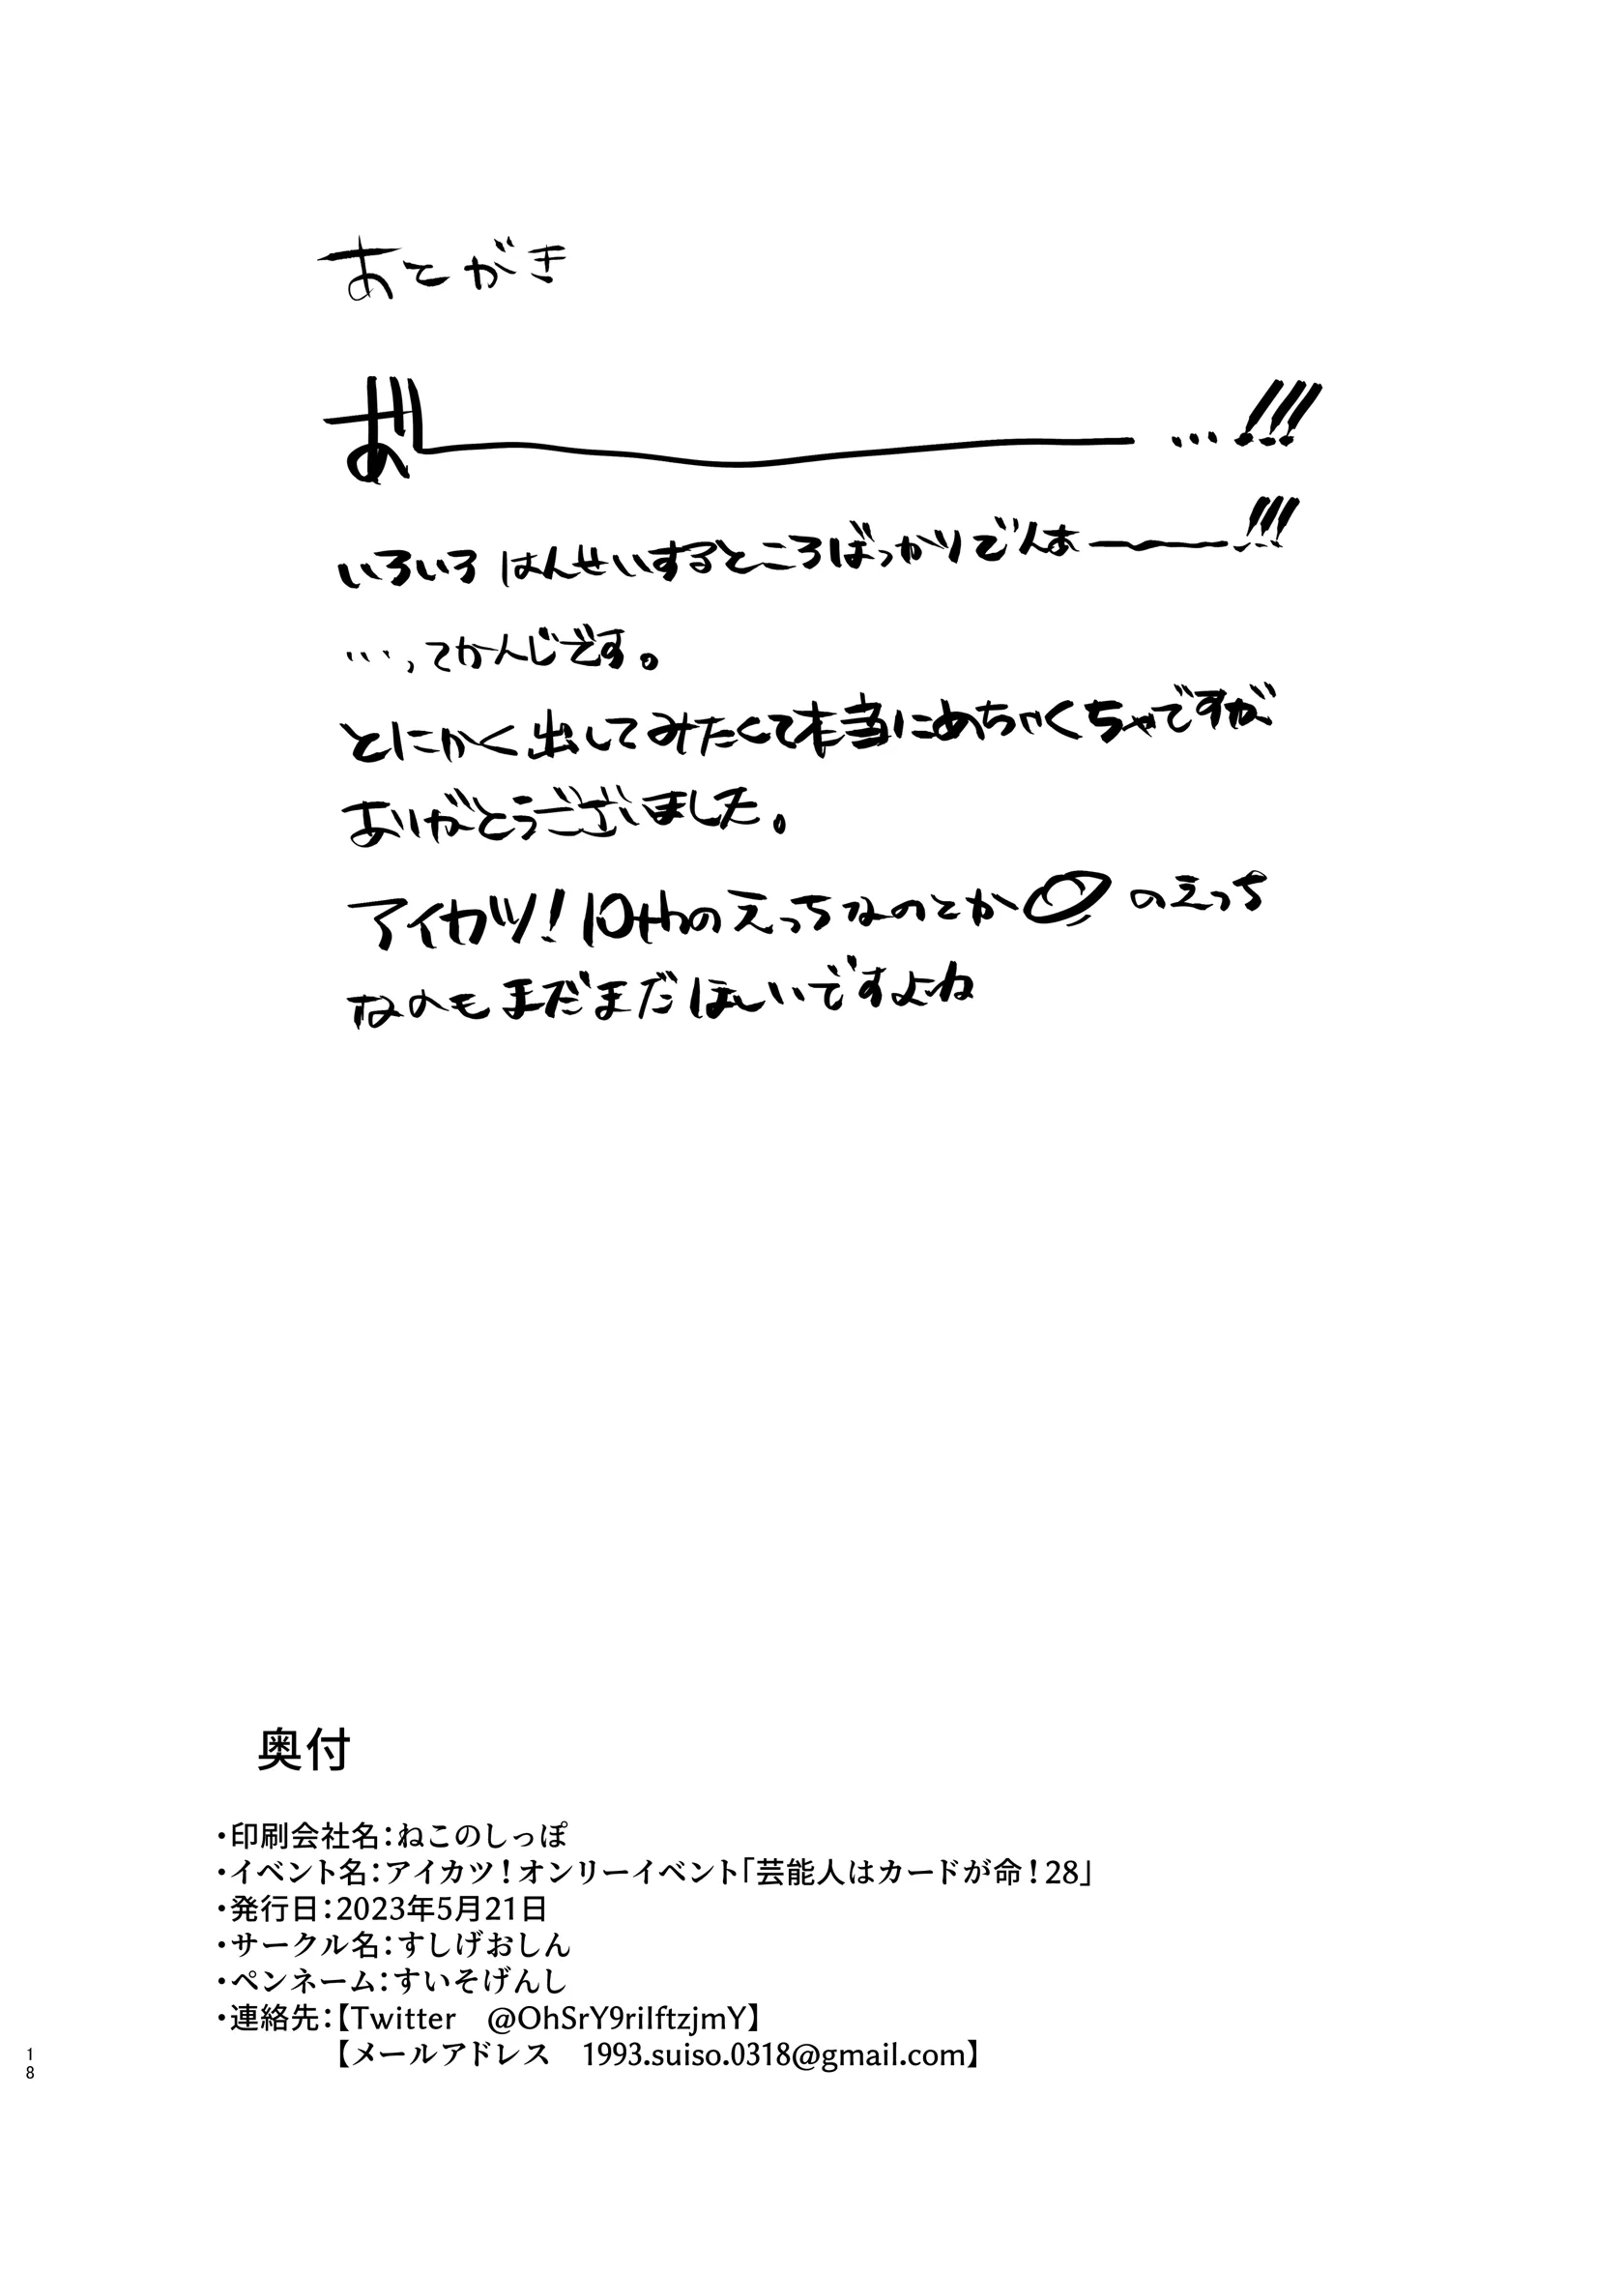 あとがき
あ゛ーーー…!!!
いろいろはんせいするところばっかりでんあーーー!!!
…ってかんじです。
とにかく出してみたくて本当にめちゃくちゃですが、
ありがとうございました。
アイカツ!10thのえっちなのとか のえっち
なのもまだまだほしいですよね
奥付
・印刷会社名：ねこのしっぽ
・イベント名：アイカツ！オンリーイベント「芸能人はカードが命！28」
・発行日：2023年5月21日
・サークル名：すしげおしん
・ペンネーム：すいそげんし
・連絡先：【Twitter　@OhSrY9rilftzjmY】
【メールアドレス　1993.suiso.0318@gmail.com】
18